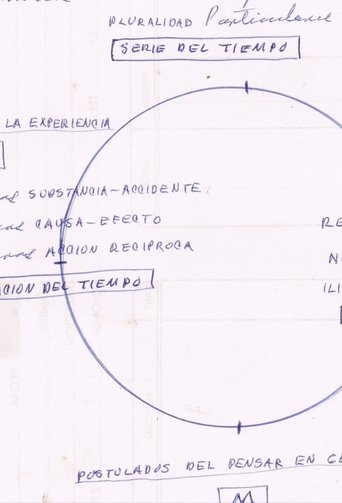 PLURALIDAD Particulares
SERIE DEL TIEMPO
LA EXPERIENCIA
SUBSTANCIA-ACCIDENTE
CAUSA-EFECTO
ACCION RECIPROCA
CION DEL TIEMPO
RE
N
ILI
POSTULADOS DEL PENSAR EN GE
M